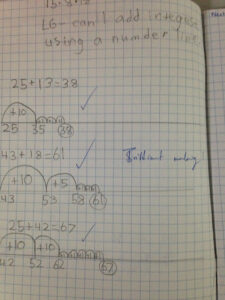 15.8.18
LG- can I add integers
using a number line
25+13=38
+10
25 35 38
43+18=61
+10 +5
43 53 58 61
25+42=67
+10 +10
42 52 62 67
Brilliant